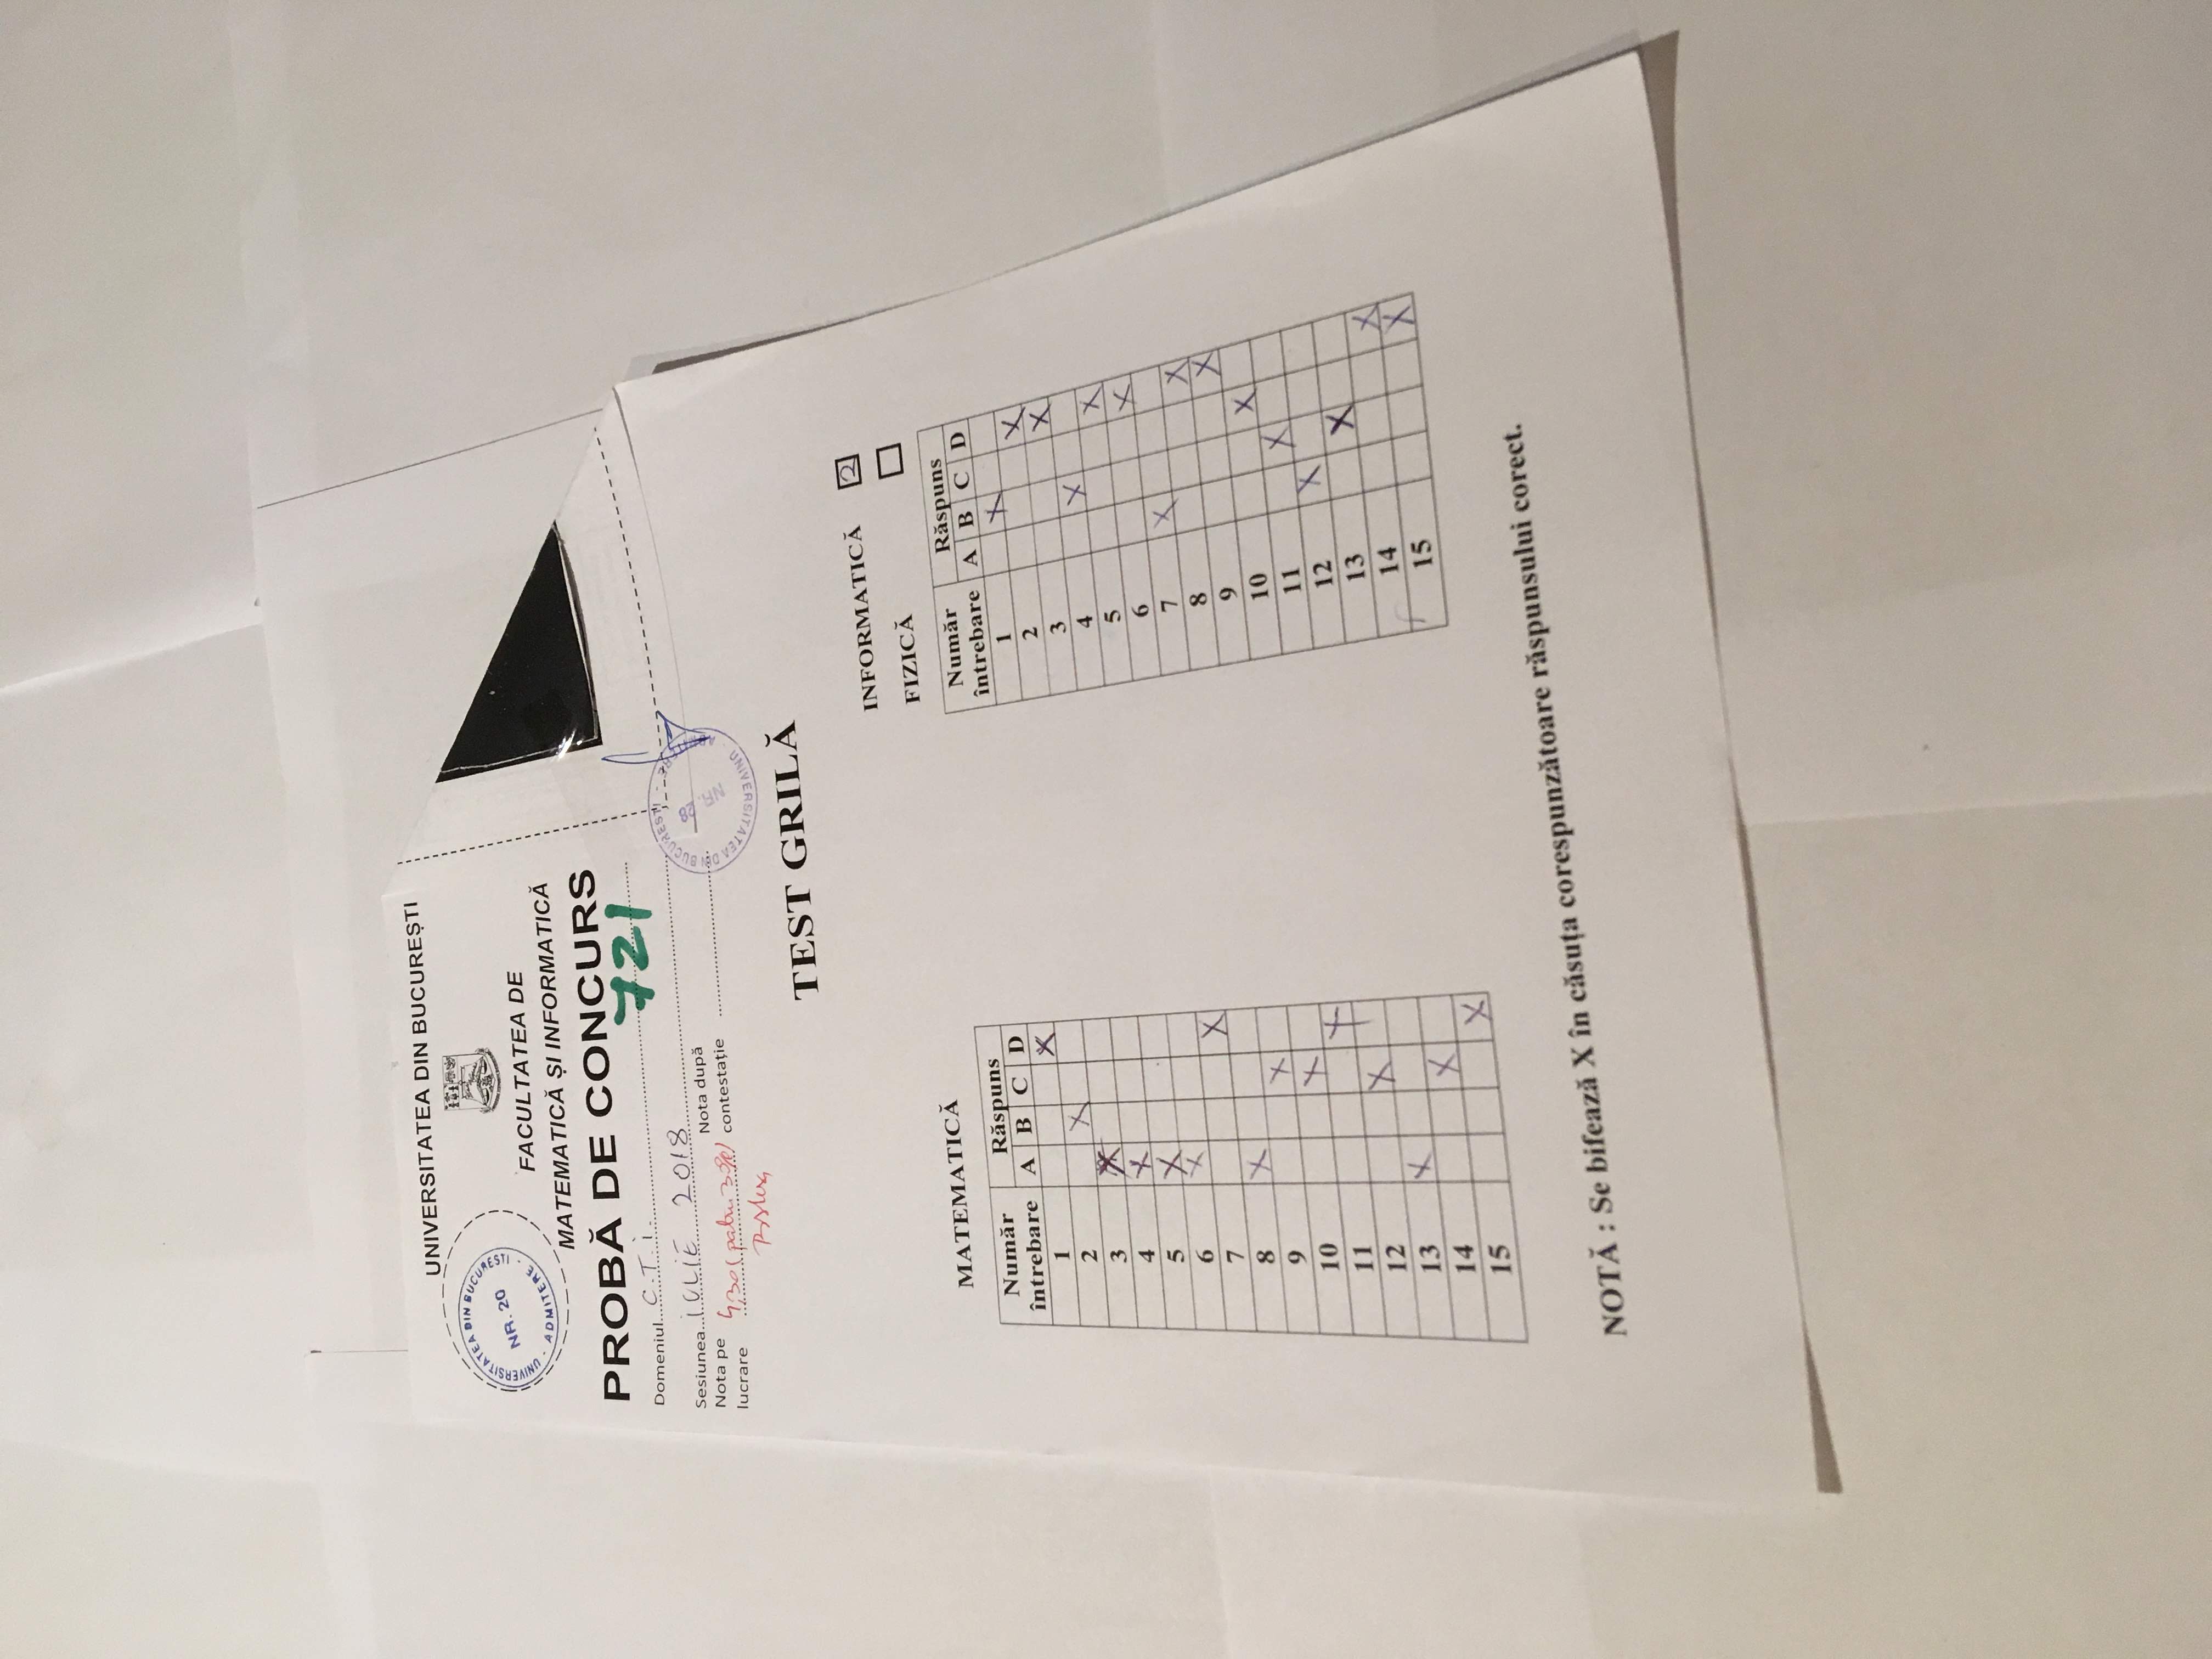 UNIVERSITATEA DIN BUCUREȘTI
UNIVERSITATEA DIN BUCURESTI - ADMITERE -
NR. 20
FACULTATEA DE
MATEMATICĂ ȘI INFORMATICĂ
PROBĂ DE CONCURS
721
Domeniul C.T.i.
Sesiunea iULiE 2018
Nota pe lucrare 4,30 (patru 30%)
Nota după contestație
UNIVERSITATEA DIN BUCURESTI - ADMITERE -
NR. 28
TEST GRILĂ
MATEMATICĂ
Număr întrebare Răspuns
A B C D
1 X
2 X
3 X
4 X
5 X
6 X
7 X
8 X
9 X
10 X
11 X
12 X
13 X
14 X
15 X
INFORMATICĂ 2
FIZICĂ
Număr întrebare Răspuns
A B C D
1 X
2 X
3 X
4 X
5 X
6 X
7 X
8 X
9 X
10 X
11 X
12 X
13 X
14 X
15 X
NOTĂ : Se bifează X în căsuța corespunzătoare răspunsului corect.